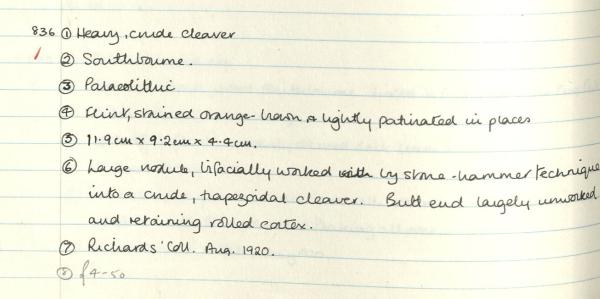 836 ① Heavy, crude cleaver
② Southbourne.
③ Palaeolithic
④ Flint, stained orange-brown & lightly patinated in places
⑤ 11.9cm x 9.2cm x 4.4cm.
⑥ Large nodule, bifacially worked with by stone-hammer technique
into a crude, trapezoidal cleaver. Butt end largely unworked
and retaining rolled cortex.
⑦ Richards' Coll. Aug. 1920.
⑧ f4-50